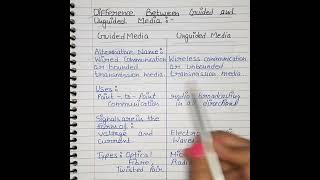 Difference Between Guided and
Unguided Media :-
Guided Media Unguided Media
Alternative Name:
Wired Communication Wireless communication
or bounded or unbounded
transmission media. transmission media
Uses:
Point - to - Point radio broadcasting
communication in all directions
Signals are in the
form of:
voltage and Electro
current Wave
Types: Optical Mic
Fibre, Radi
Twisted Pair